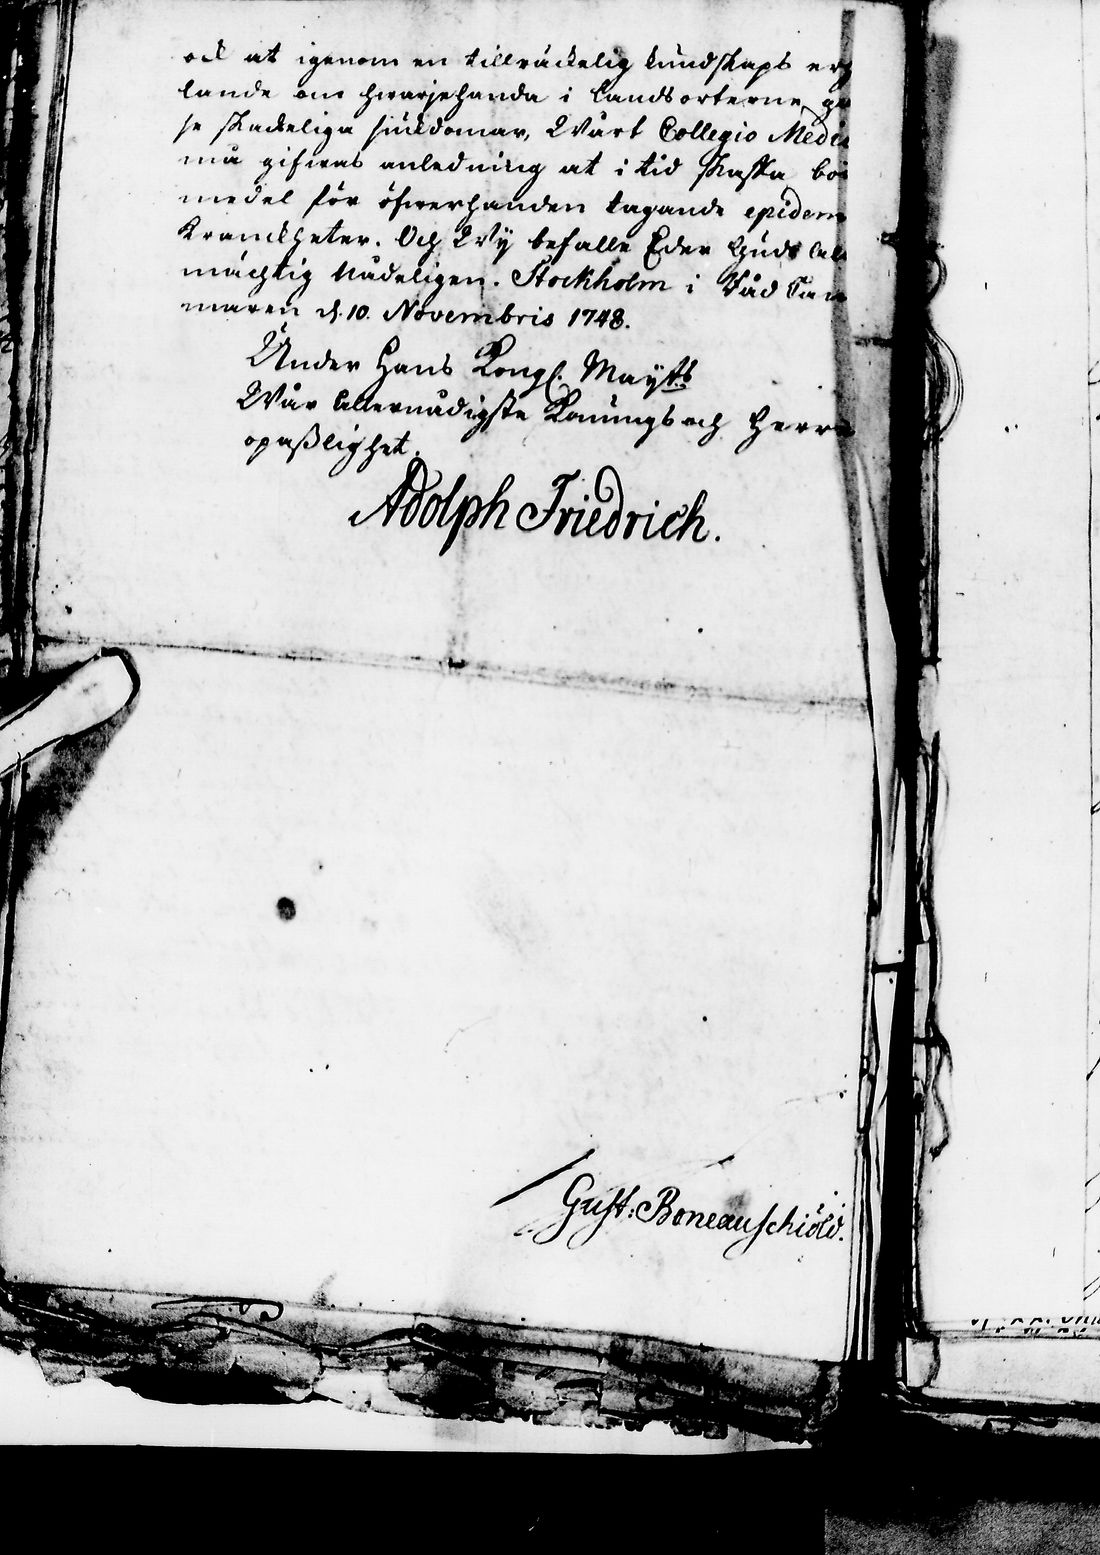 ock at igenom en tillräckelig kundskaps erh
lande om hwarjehanda i landsorterne gr
se skadeliga siukdomar, Wårt Collegio Medic
må gifwas anledning at i tid skaffa bo
medel för öfwerhanden tagande epidem
Kranckheter. Och Wÿ befalle Eder Gud all
mächtig nådeligen. Stockholm i Råd Cam
maren d. 10. Novembris 1748.
Under Hans Kongl. Mayts
Wår Allernådigste Konungs och Herre
opaßlighet.
Adolph Friedrich.
Gust: Boneauschiöld.